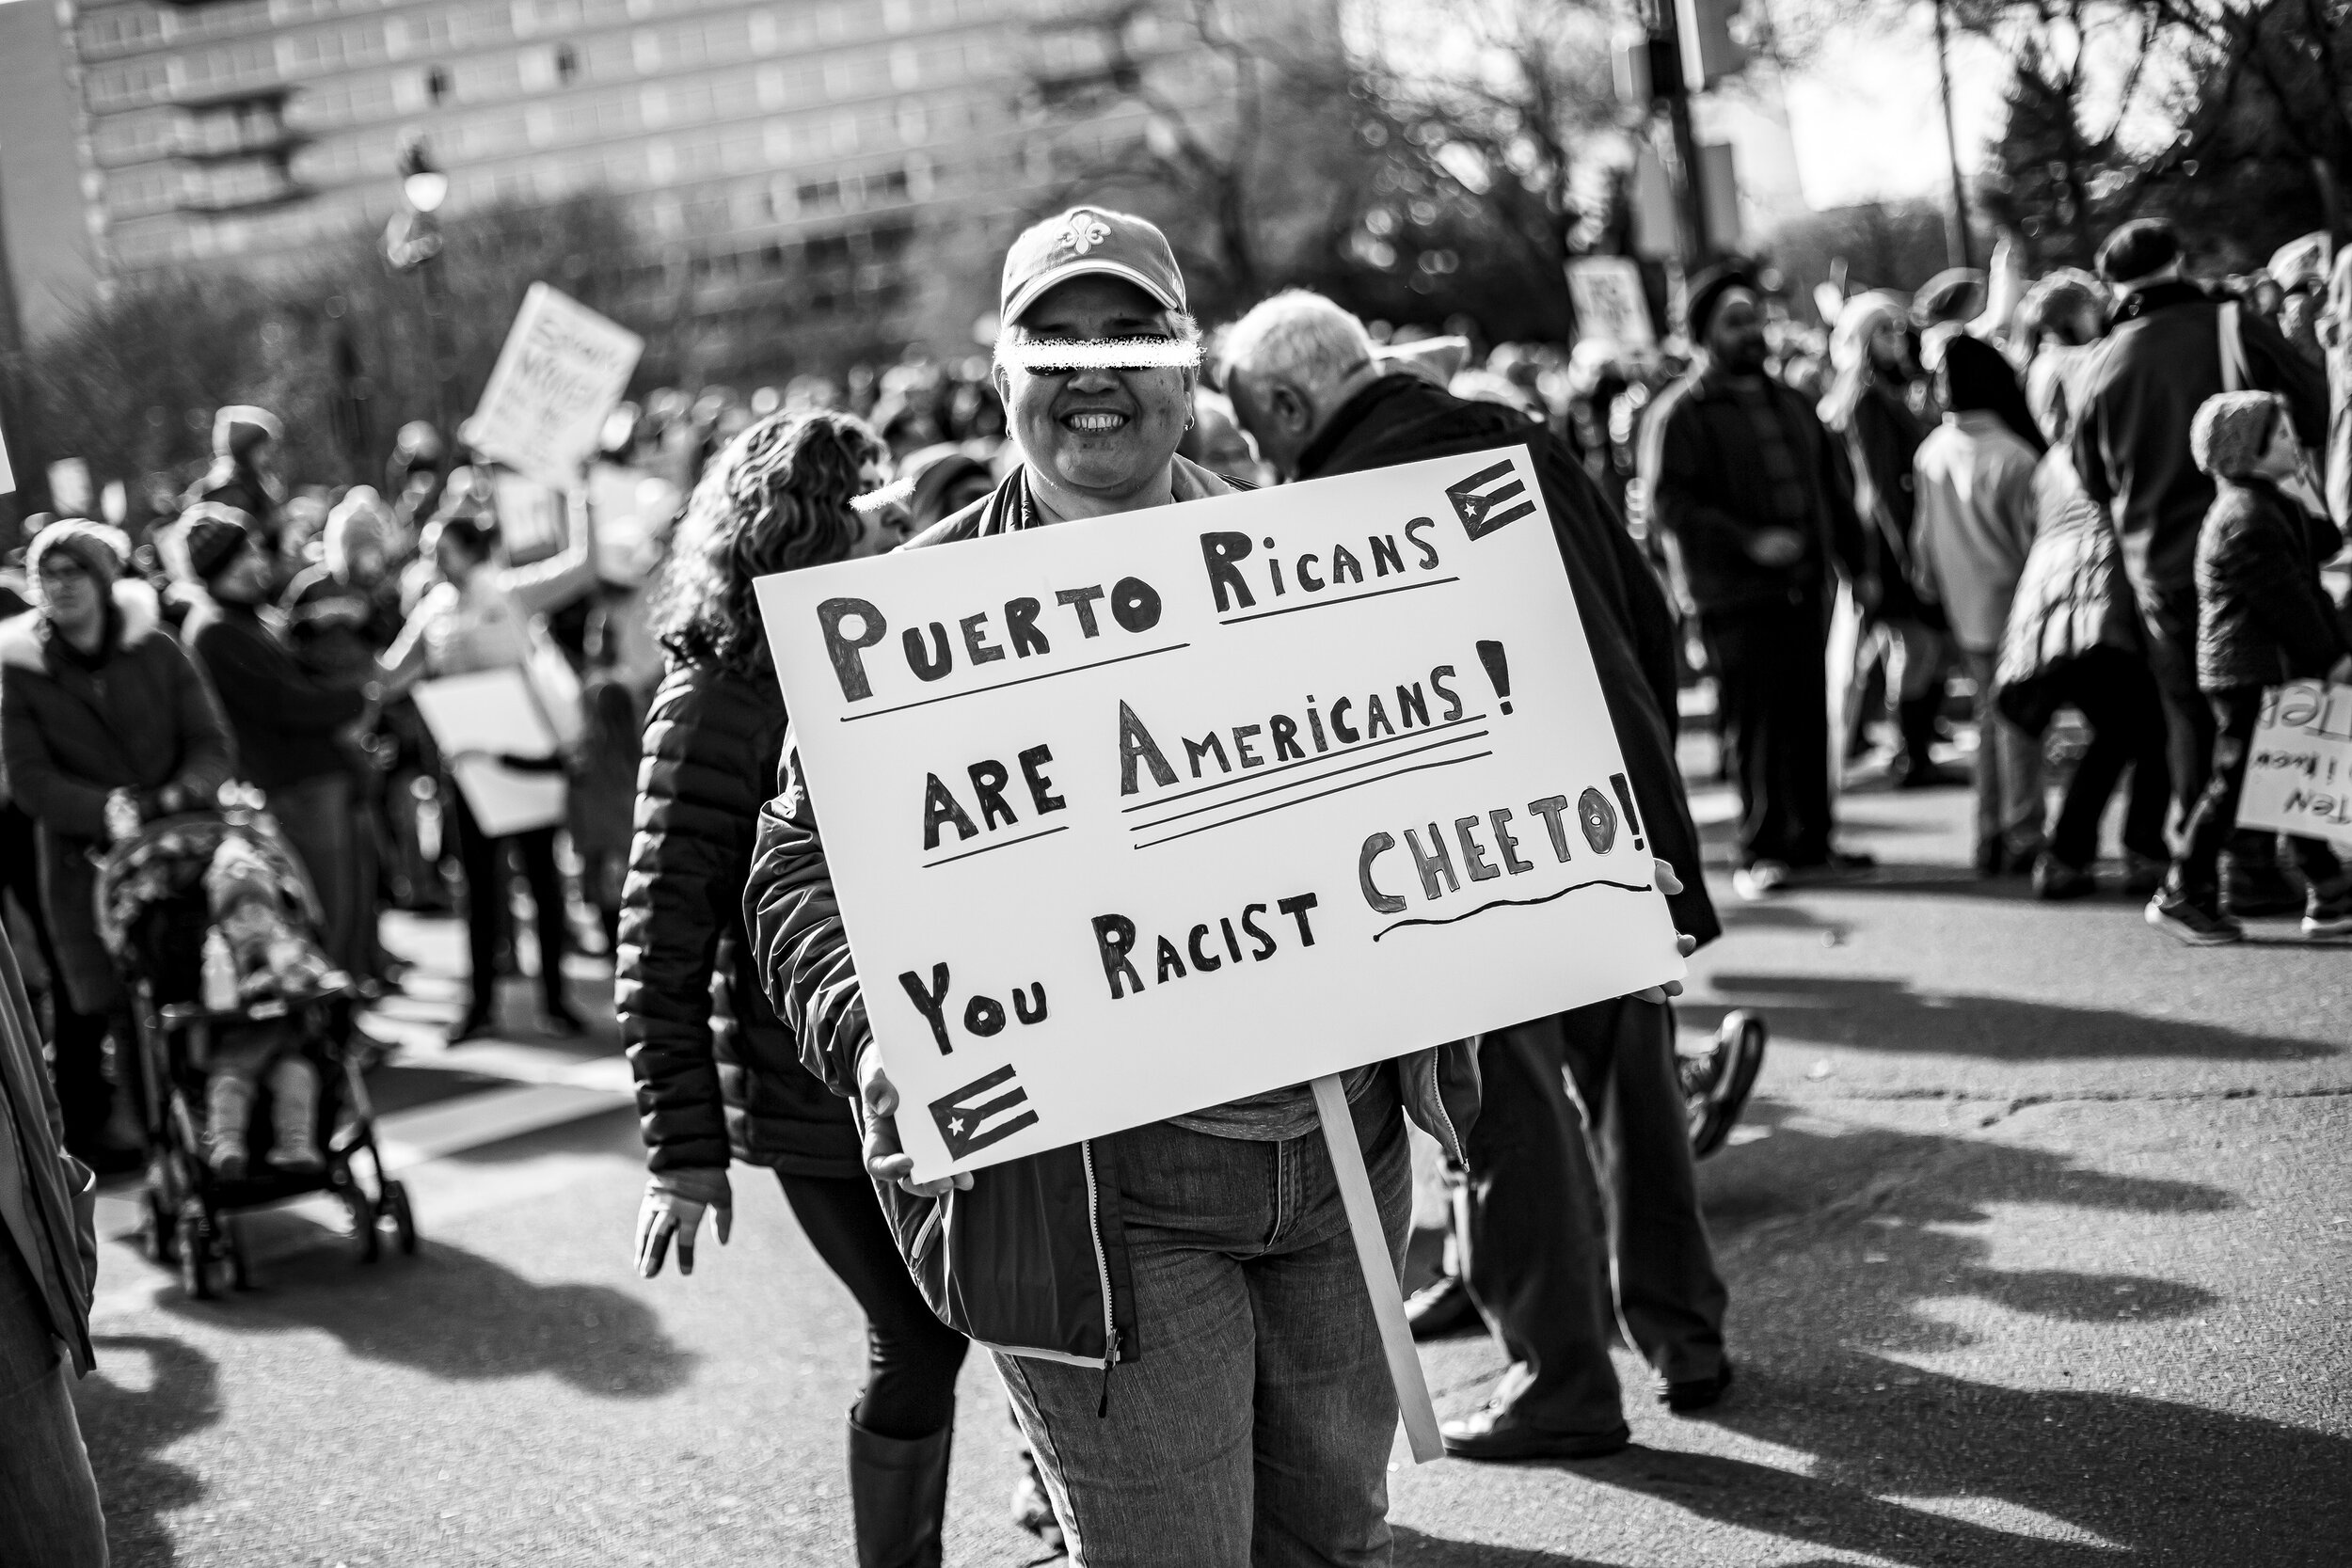 PUERTO RiCANS
ARE AMERiCANS!
YOU RACIST CHEETO!